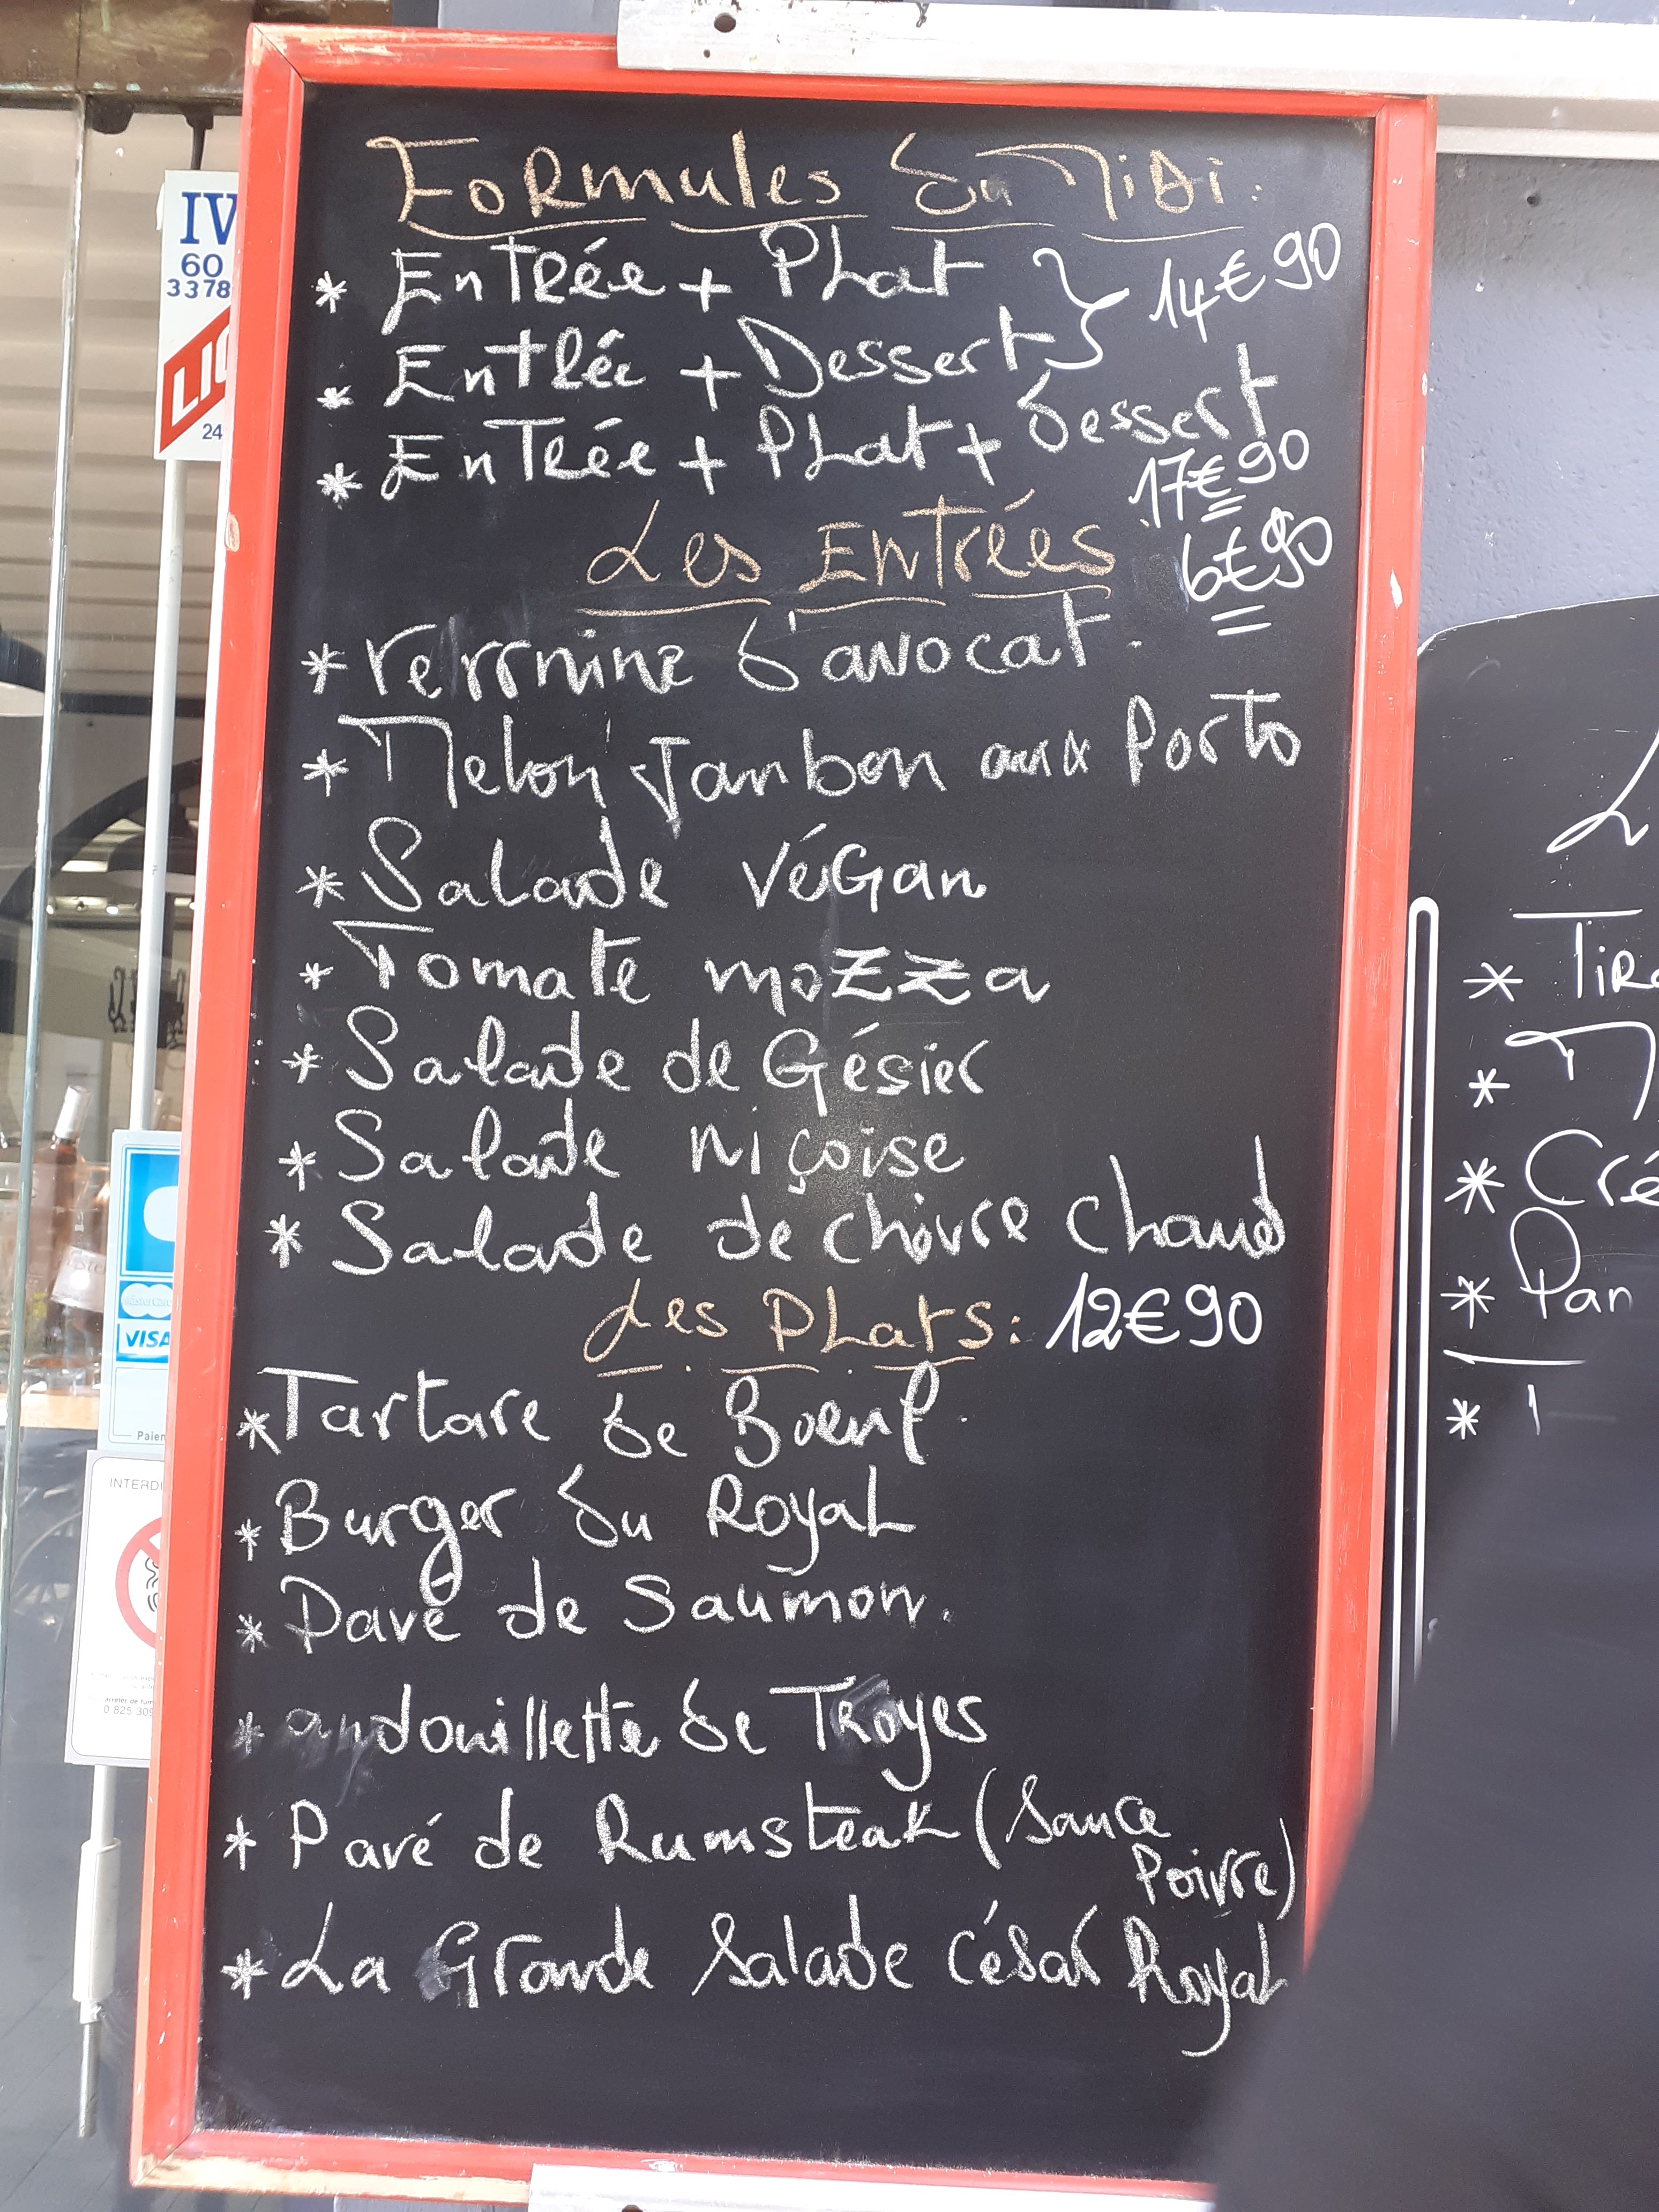 Formules du Midi :
* Entrée + Plat
* Entrée + Dessert } 14€90
* Entrée + Plat + dessert
17€90
Les Entrées 6€90
* Verrnine d'avocat.
* Melon Jambon aux Porto
* Salade végan
* Tomate mozza
* Salade de Gésier
* Salade niçoise
* Salade de chèvre chaud
Les Plats : 12€90
* Tartare de Boeuf.
* Burger du Royal
* Pavé de Saumon.
* andouillette de Troyes
* Pavé de Rumsteak (Sauce
Poivre)
* La Grande Salade César Royal
IV
60
3378
LIC
24
VISA
Paiem
INTERDI
0 825 309
L
* Tira
* M
* Cré
* Pan
*